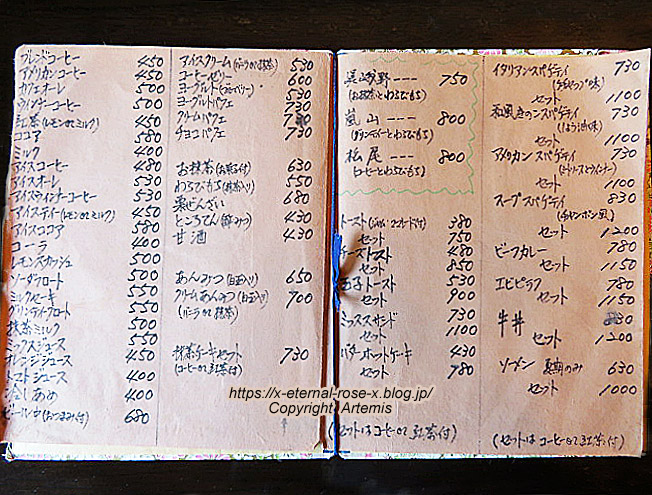 ブレンドコーヒー 450
アメリカンコーヒー 450
カフェオーレ 500
ウインナーコーヒー 500
紅茶(レモンorミルク) 450
ココア 580
ミルク 400
アイスコーヒー 480
アイスオーレ 530
アイスウインナーコーヒー 530
アイスティー(レモンorミルク) 450
アイスココア 580
コーラ 400
レモンスカッシュ 500
ソーダフロート 500
ミルクセーキ 550
グリンティーフロート 550
抹茶ミルク 500
ミックスジュース 550
オレンジジュース 450
トマトジュース 400
冷しあめ 400
ビール(おつまみ付) 680
アイスクリーム(バニラor抹茶) 530
コーヒーゼリー 600
ヨーグルト 530
ヨーグルトパフェ 730
クリームパフェ
チョコパフェ 730
お抹茶(お菓子付) 630
わらびもち(抹茶入り) 550
栗ぜんざい 680
ところてん 430
甘酒 430
あんみつ(白玉入り) 650
クリームあんみつ(白玉入り) 700
(バニラor抹茶)
抹茶ケーキセット 730
(コーヒーor紅茶付)
嵯峨野 --- 750
(お抹茶とわらびもち)
嵐山 --- 800
(グリンティーとわらびもち)
松尾 --- 800
(コーヒーとわらびもち)
トースト 380
セット 750
チーズトースト 480
セット 850
玉子トースト 530
セット 900
ミックスサンド 730
セット 1100
バターホットケーキ 430
セット 780
(セットはコーヒーor紅茶付)
イタリアンスパゲティ 730
(ケチャップ味)
セット 1100
和風きのこスパゲティ 730
(しょうゆ味)
セット 1100
アメリカンスパゲティ 730
セット 1100
スープスパゲティ 830
(チャンポン風)
セット 1200
ビーフカレー 780
セット 1150
エビピラフ 780
セット 1150
牛丼
セット 1200
ソーメン 夏期のみ 630
セット 1000
(セットはコーヒーor紅茶付)
https://x-eternal-rose-x.blog.jp/
Copyright Artemis